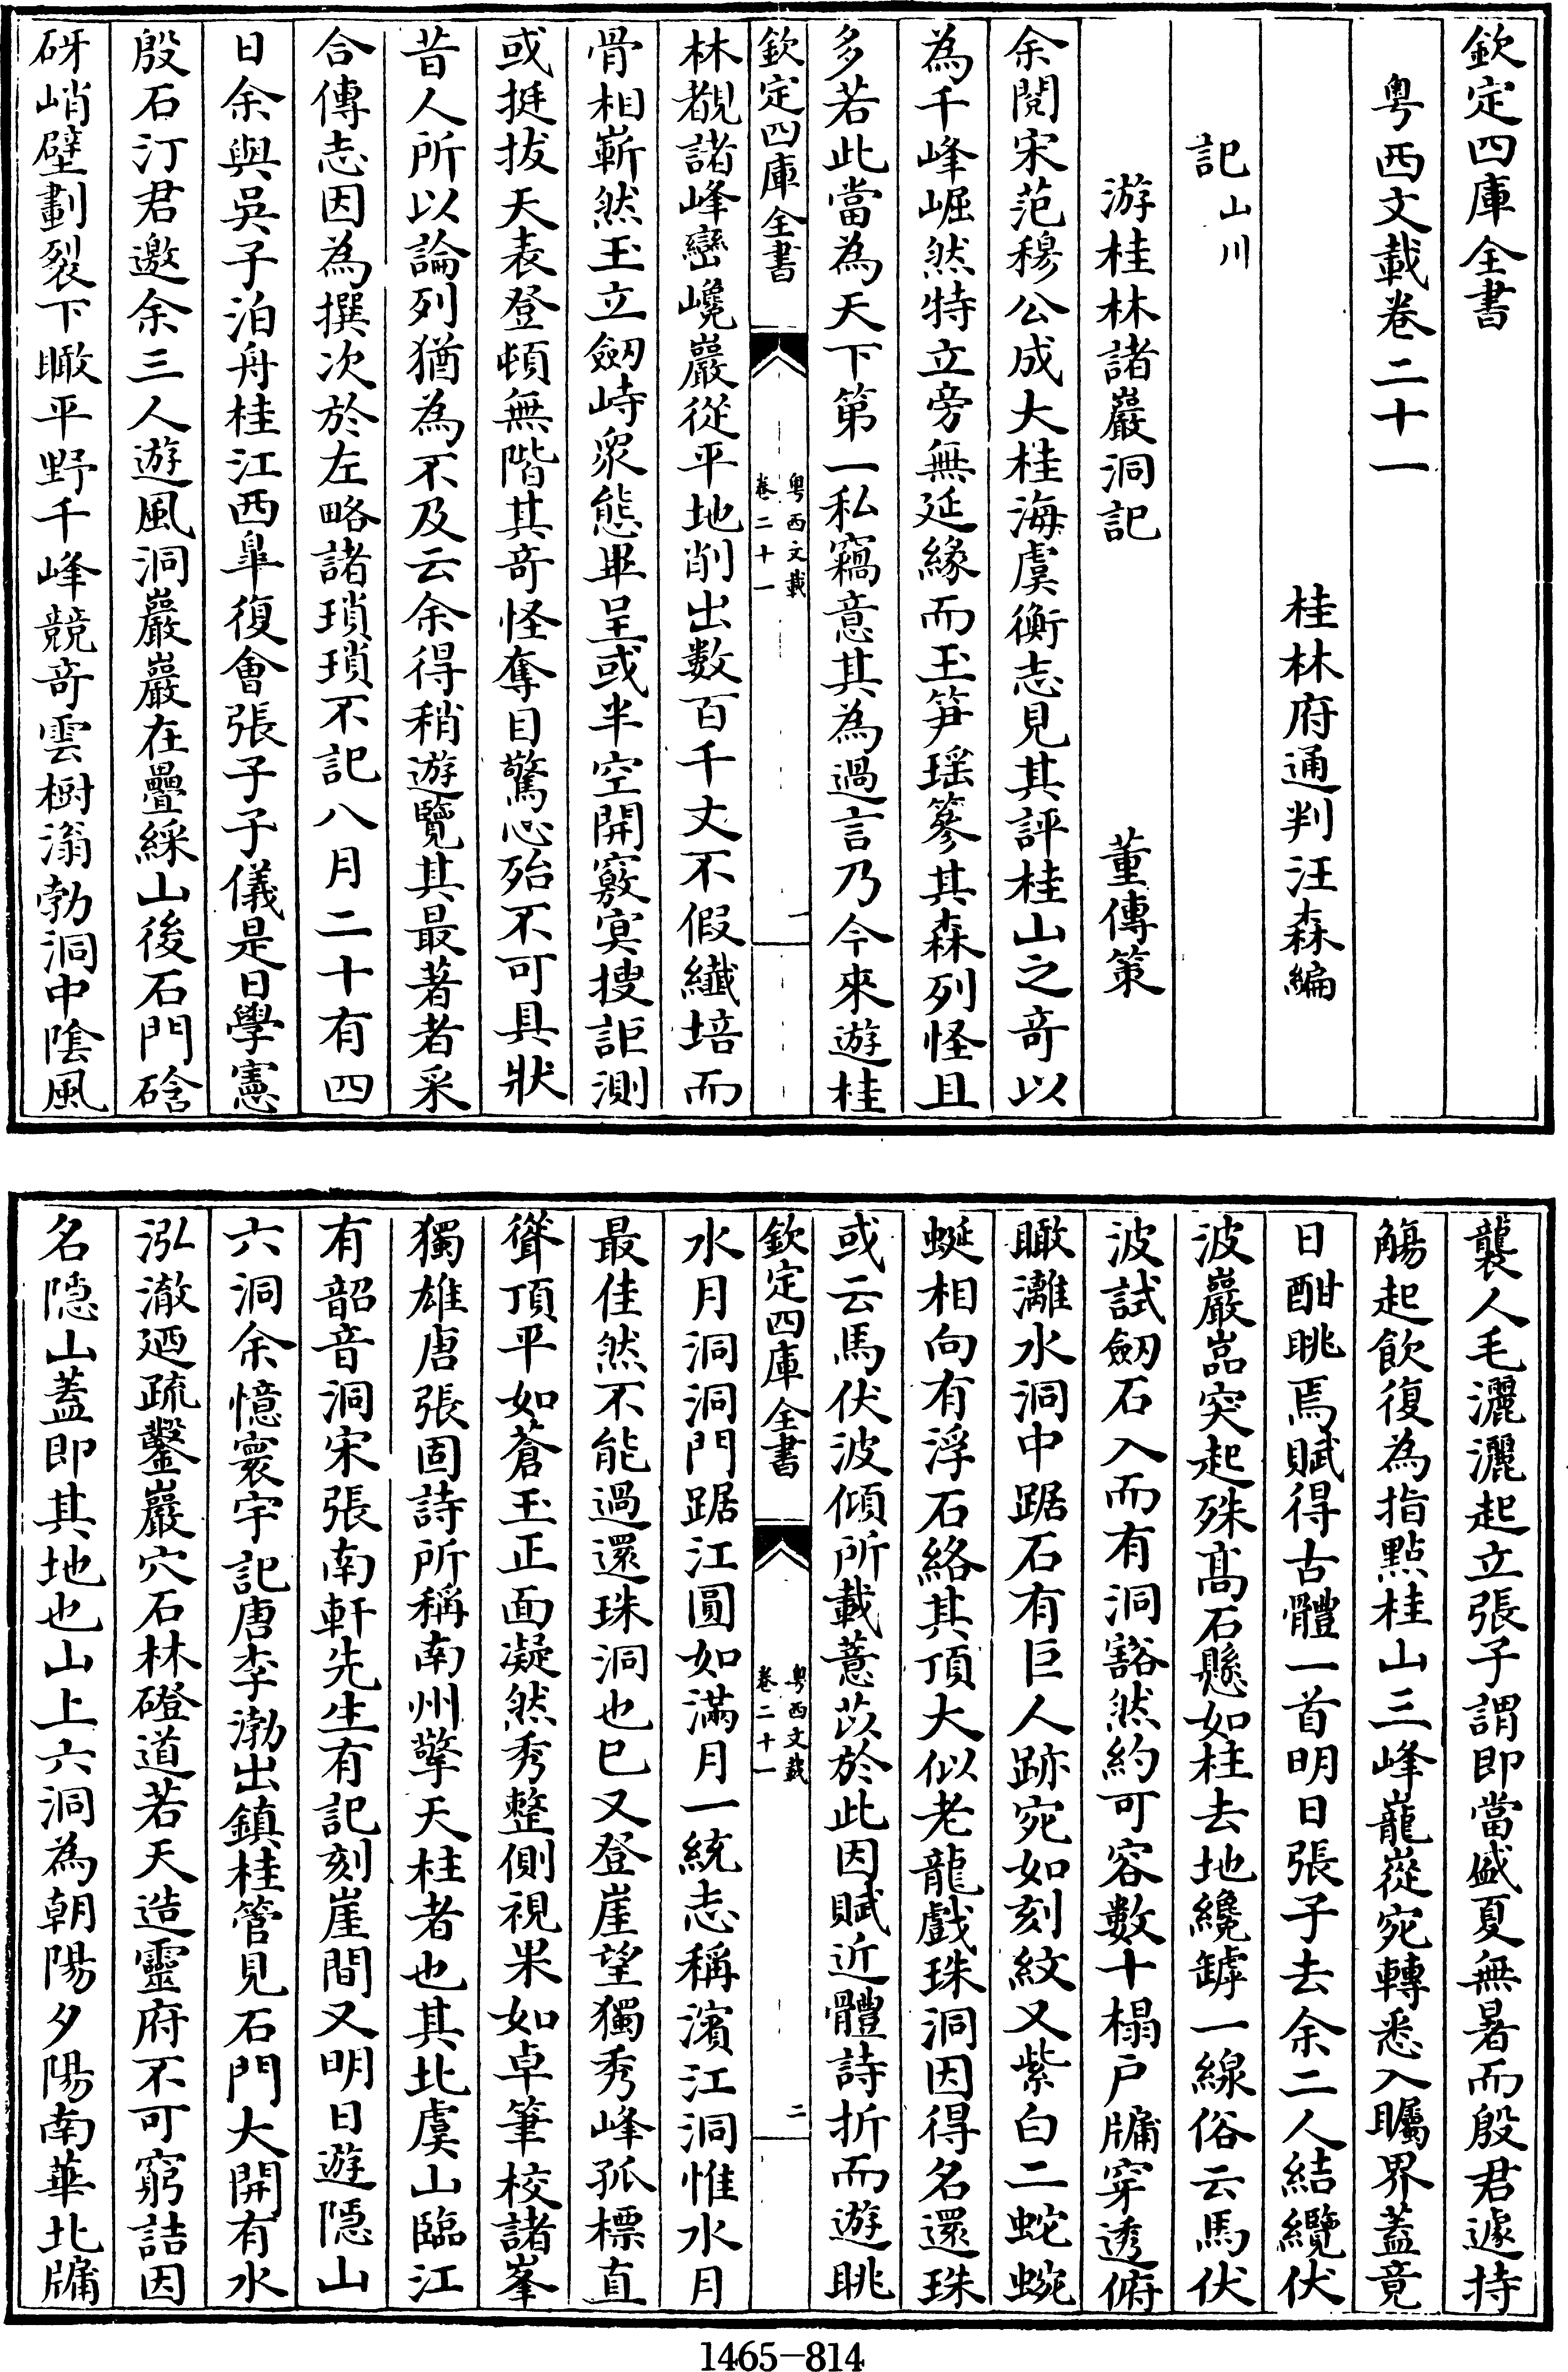 欽定四庫全書
粤西文載卷二十一
桂林府通判汪森編
記山川
游桂林諸巖洞記　董傳策
余閱宋范穆公成大桂海虞衡志見其評桂山之奇以
為千峰崛然特立旁無延緣而玉筍瑶篸其森列怪且
多若此當為天下第一私竊意其為過言乃今來遊桂
欽定四庫全書
粤西文載
卷二十一
一
林覩諸峰巒巉巖從平地削出數百千丈不假纎培而
骨相嶄然玉立劒峙衆態畢呈或半空開竅㝠搜詎測
或挺拔天表登頓無階其奇怪奪目驚心殆不可具狀
昔人所以論列猶為不及云余得稍遊覽其最著者采
合傳志因為撰次於左略諸瑣瑣不記八月二十有四
日余與吳子泊舟桂江西臯復會張子子儀是日學憲
殷石汀君邀余三人遊風洞巖巖在疊綵山後石門硆
砑峭壁劃裂下瞰平野千峰競奇雲樹滃勃洞中隂風
襲人毛灑灑起立張子謂即當盛夏無暑而殷君遽持
觴起飲復為指點桂山三峰巃嵸宛轉悉入矚界蓋竟
日酣眺焉賦得古體一首明日張子去余二人結纜伏
波巖嵓突起殊髙石懸如柱去地纔罅一線俗云馬伏
波試劒石入而有洞豁然約可容數十榻戸牖穿透俯
瞰灕水洞中踞石有巨人跡宛如刻紋又紫白二蛇蜿
蜒相向有浮石絡其頂大似老龍戲珠洞因得名還珠
或云馬伏波傾所載薏苡於此因賦近體詩折而遊眺
欽定四庫全書
粤西文載
卷二十一
二
水月洞洞門踞江圓如滿月一統志稱濱江洞惟水月
最佳然不能過還珠洞也已又登崖望獨秀峰孤標直
聳頂平如蒼玉正面凝然秀整側視果如卓筆校諸峯
獨雄唐張固詩所稱南州擎天柱者也其北虞山臨江
有韶音洞宋張南軒先生有記刻崖間又明日遊隠山
六洞余憶寰宇記唐李渤出鎮桂管見石門大開有水
泓澈廼疏鑿巖穴石林磴道若天造靈府不可窮詰因
名隠山蓋即其地也山上六洞為朝陽夕陽南華北牖
1465-814